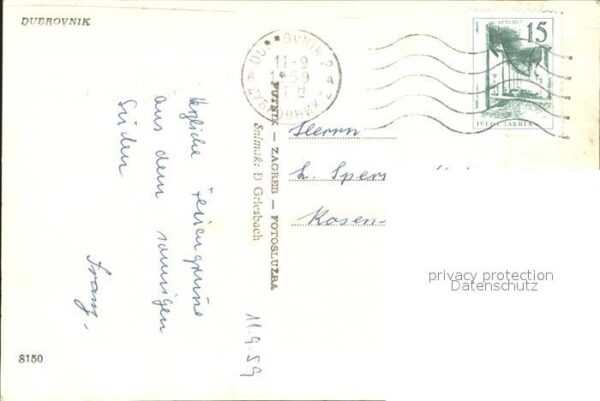 DUBROVNIK
Herzliche Feriengrüsse
aus dem sonnigen
Süden
Franz.
11.9.59
8150
PUTNIK — ZAGREB — FOTOSLUŽBA
Snimak: D Griesbach
DUBROVNIK 2
11-9
59
ДУБРОВНИК
15
JUGOSLAVIJA
Herrn
L. Sper
Rosen-
privacy protection
Datenschutz